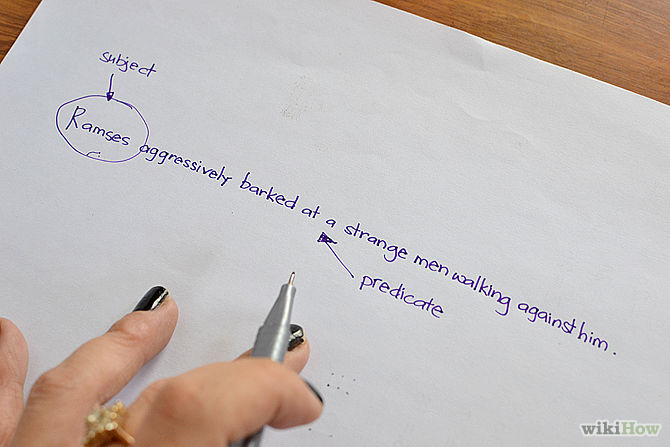 subject
Ramses aggressively barked at a strange men walking against him.
predicate
wikiHow